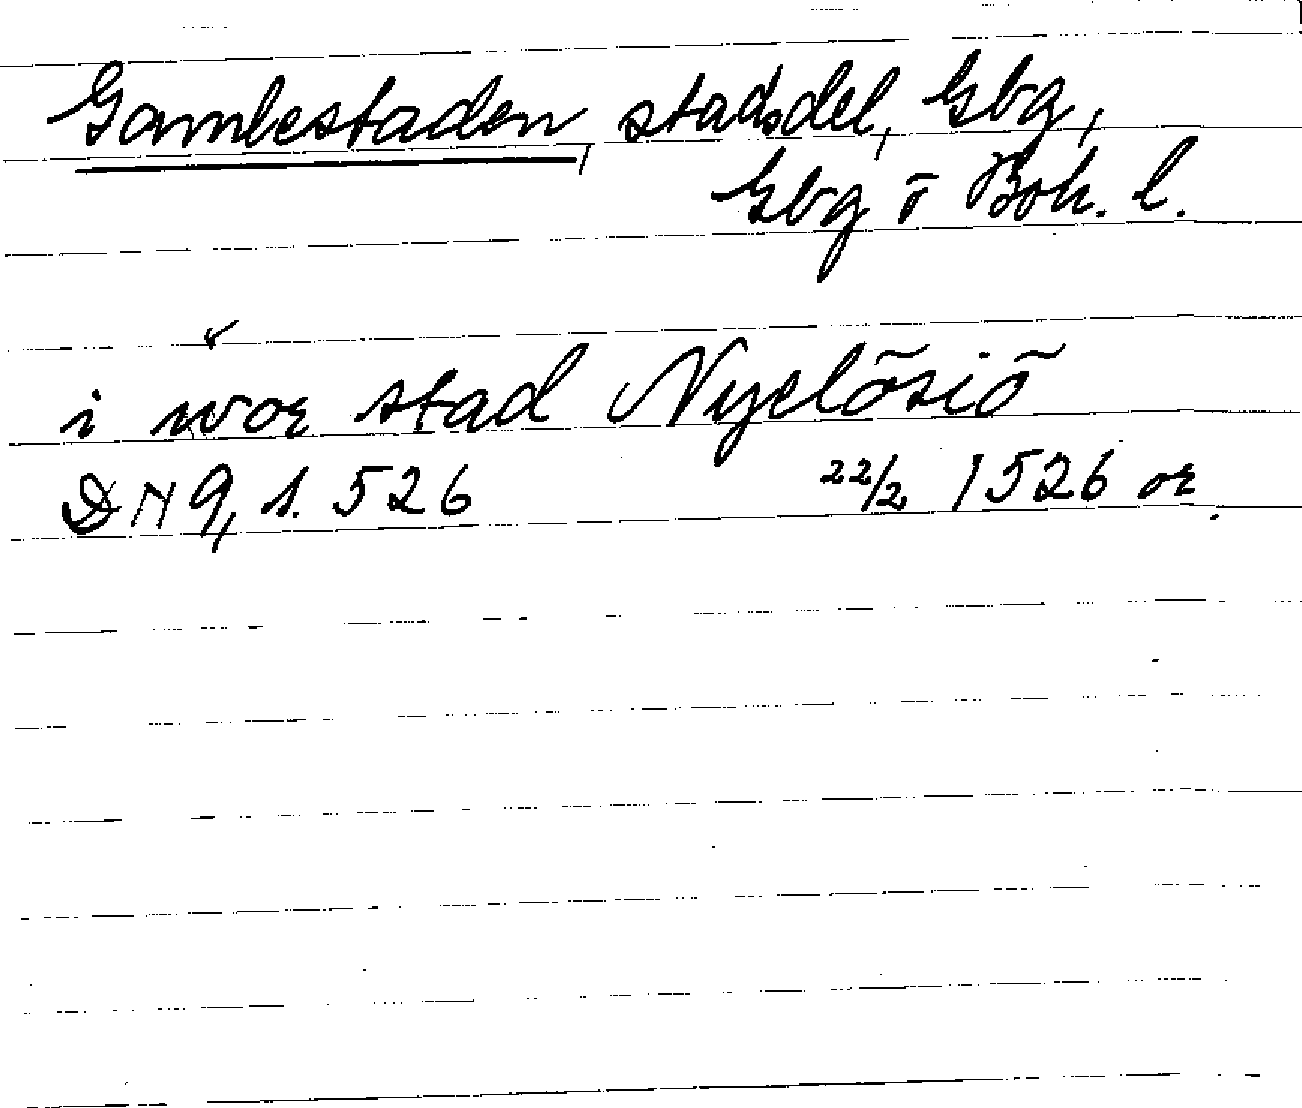 Gamlestaden, stadsdel, Gbg,
Gbg o Boh. l.
i wor stad Nyelösiö
DN 9, s. 526 22/2 1526 or.